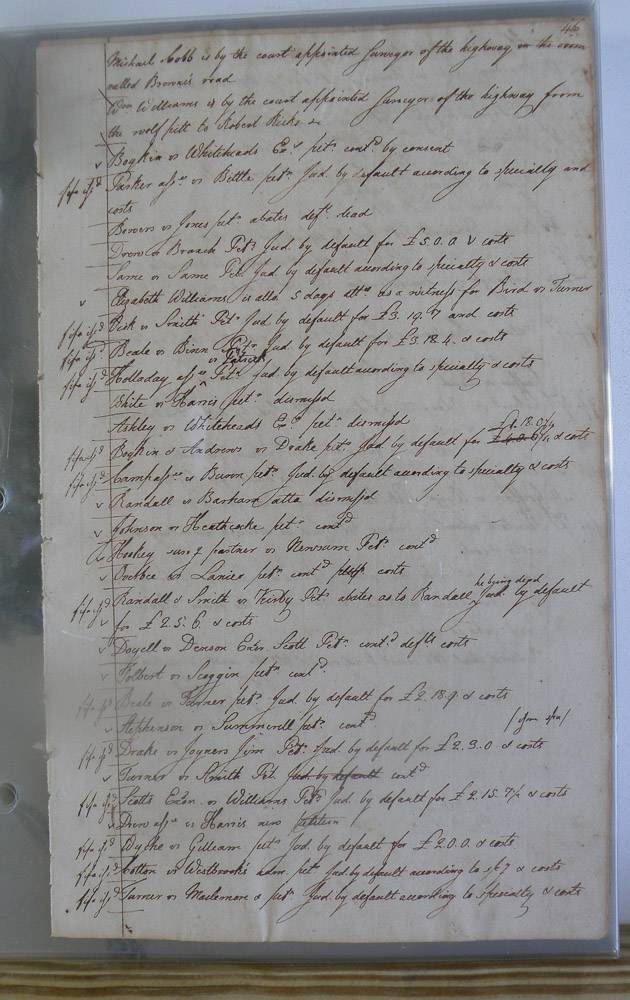 46
Michael Cobb is by the court appointed Surveyor of the highway in the room
called Browns road
Wm Williams is by the court appointed Surveyor of the highway from
the wolf pitt to Robert Ricks &
v Boykin vs Whiteheads Exr petn contd by consent
fifa issd Parker asse vs Bittle petn Jud. by default according to specialty and
costs
Bowers vs Jones petn abates deft dead
Drew vs Branch Petn Jud. by default for £5.0.0 & costs
Same vs Same Petn Jud by default according to specialty & costs
v Elizabeth Williams is alld 5 days attn as a witness for Bird vs Turner
fifa issd Vick vs Smith Petn Jud by default for £3.19.7 and costs
fifa issd Beale vs Binn Petn Jud by default for £3.18.4. & costs
vs Patrick
fifa issd Holladay asse Petn Jud by default according to specialty & costs
White vs Harris petn dismissd
Ashley vs Whiteheads Exr petn dismissd
£1.18.0½
fifa issd Boykin & Andrews vs Drake petn Jud by default for & costs
fifa issd Camp asse vs Bowon petn Jud. by default according to specialty & costs
v Randall vs Barham atta dismissd
v Johnson vs Heathcocke petn contd
Hookey surv g partner vs Newsum Petn contd
v vs Lanier petn contd costs
he being dead
fifa issd Randall & Smith vs Kirby Petn abates as to Randall Jud. by default
v for £2.5.6. & costs
v Doyell vs Denson Exrs Scott Petn contd defts costs
v Folbert vs Scoggin petn contd
fifa issd Beale vs Turner petn Jud. by default for £2.18.9 & costs
v Stephenson vs Summerell petn contd
fifa issd Drake vs Joyners Jim Petn Jud. by default for £2.3.0 & costs
v Turner vs Smith Pet. Jud. by default contd
fifa issd Scotts Exon vs Williams Petn Jud. by default for £2.15.7½ & costs
v Drew asse vs Harris new petition
fifa issd Wyche vs Gilliam petn Jud by default for £2.0.0. & costs
fifa issd Cotton vs Westbrook's adm. petn Jud by default according to & costs
fifa issd Turner vs Maclemore & petn Jud by default according to specialty & costs